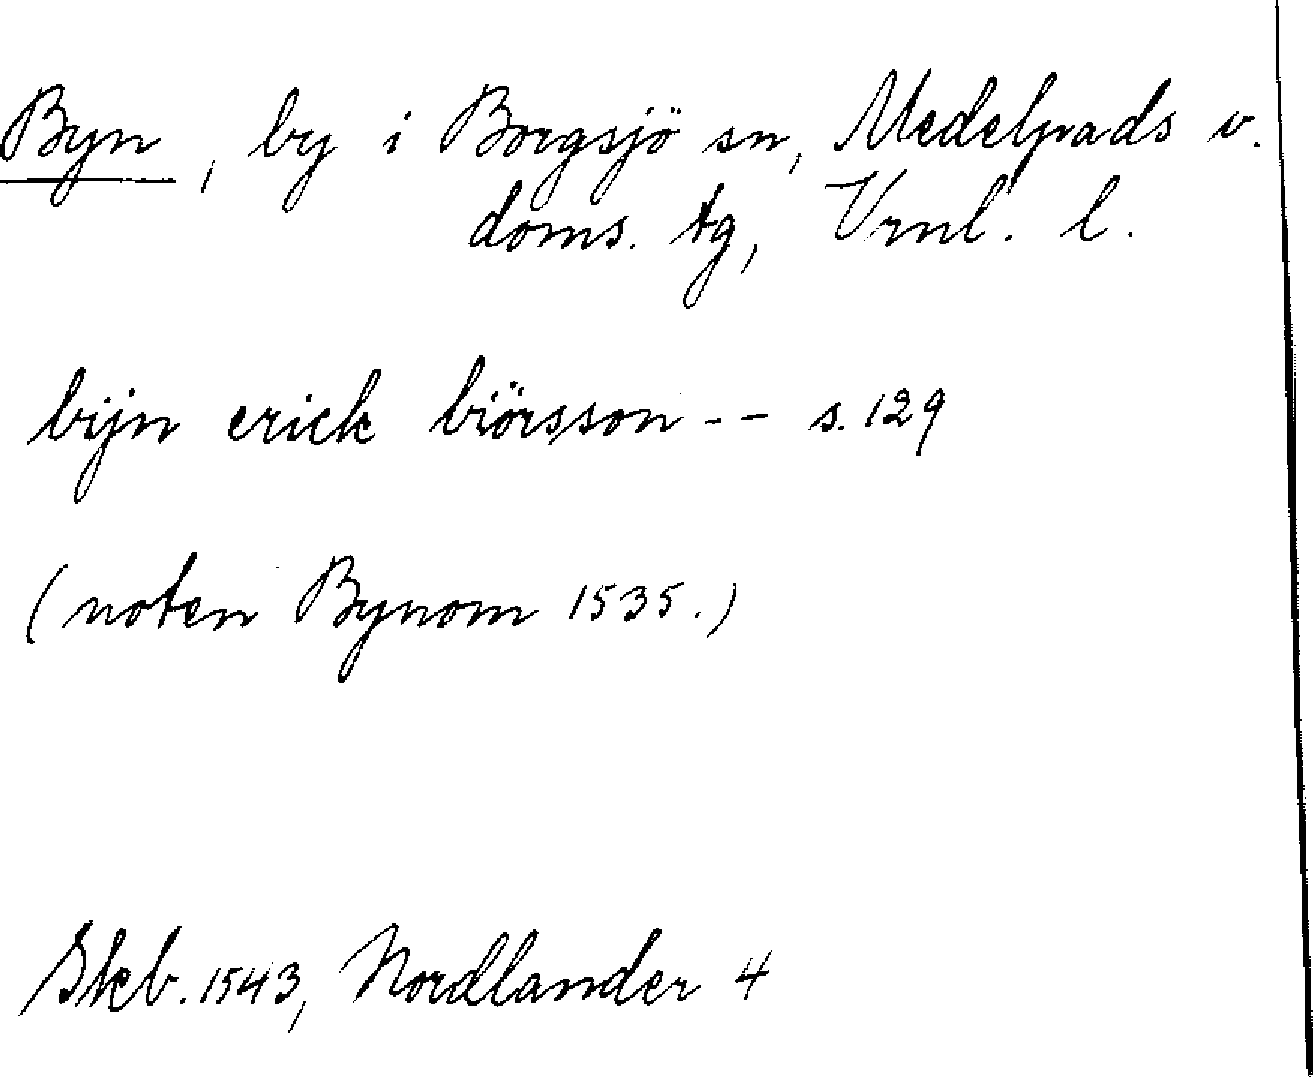 Byn, by i Borgsjö sn, Medelpads v.
doms. tg, Vrnl. l.
bijn erick biörsson -- s. 129
(noten Bynom 1535.)
Skb. 1543, Nordlander 4